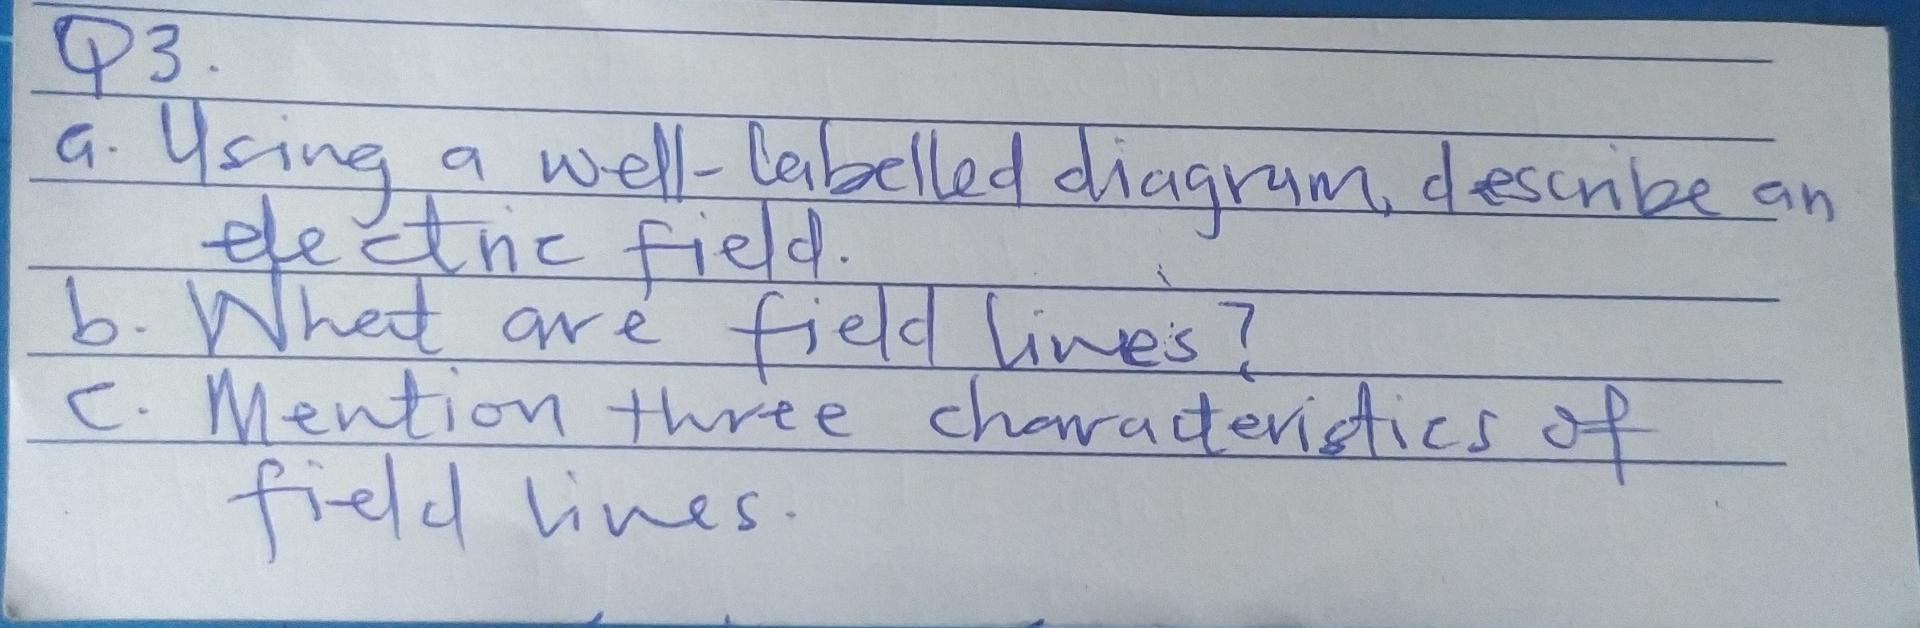 Q3.
a. Using a well-labelled diagram, describe an
electric field.
b. What are field lines?
c. Mention three characteristics of
field lines.